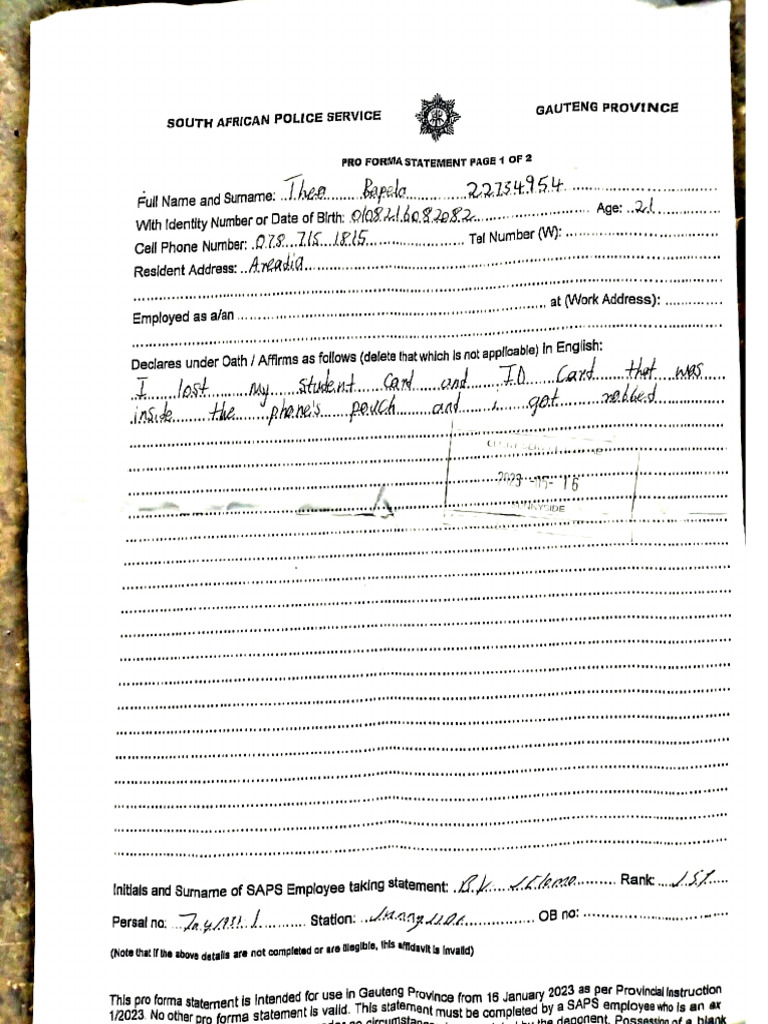 SOUTH AFRICAN POLICE SERVICE
GAUTENG PROVINCE
PRO FORMA STATEMENT PAGE 1 OF 2
Full Name and Surname: Theo Bapela 22734954
With Identity Number or Date of Birth: 0108216082082 Age: 21
Cell Phone Number: 078 715 1815 Tel Number (W):
Resident Address: Arcadia
Employed as a/an at (Work Address):
Declares under Oath / Affirms as follows (delete that which is not applicable) in English:
I lost my student Card and ID Card that was
inside the phone's pouch and i got robbed
16
SUNNYSIDE
Initials and Surname of SAPS Employee taking statement: Rank:
Persal no: Station: OB no:
(Note that if the above details are not completed or are illegible, this affidavit is invalid)
This pro forma statement is intended for use in Gauteng Province from 16 January 2023 as per Provincial Instruction
1/2023. No other pro forma statement is valid. This statement must be completed by a SAPS employee who is an ex
no circumstance by the deponent. Possession of a blank